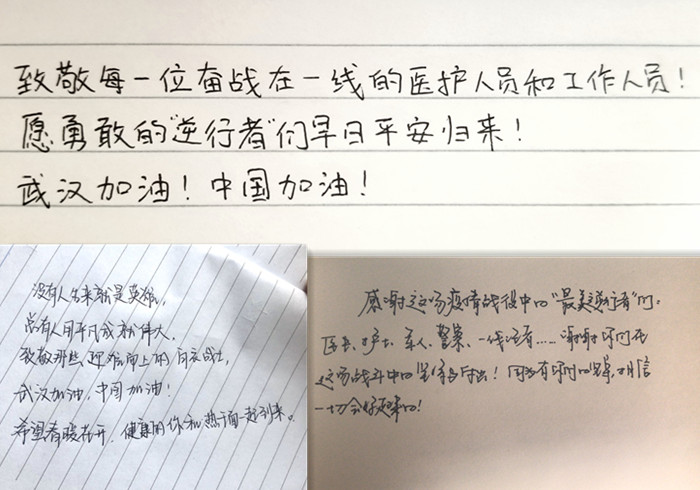 致敬每一位奋战在一线的医护人员和工作人员!
愿勇敢的"逆行者"们早日平安归来!
武汉加油!中国加油!
没有人生来就是英雄,
总有人用平凡成就伟大。
致敬那些迎着向上的白衣战士,
武汉加油,中国加油!
希望春暖花开,健康的你和热干面一起到来。
感谢这场疫情战役中的"最美逆行者"们:
医生、护士、军人、警察、一线记者……谢谢你们在
这场战斗中的坚守与付出!因为有你们的坚守,相信
一切会好起来的!